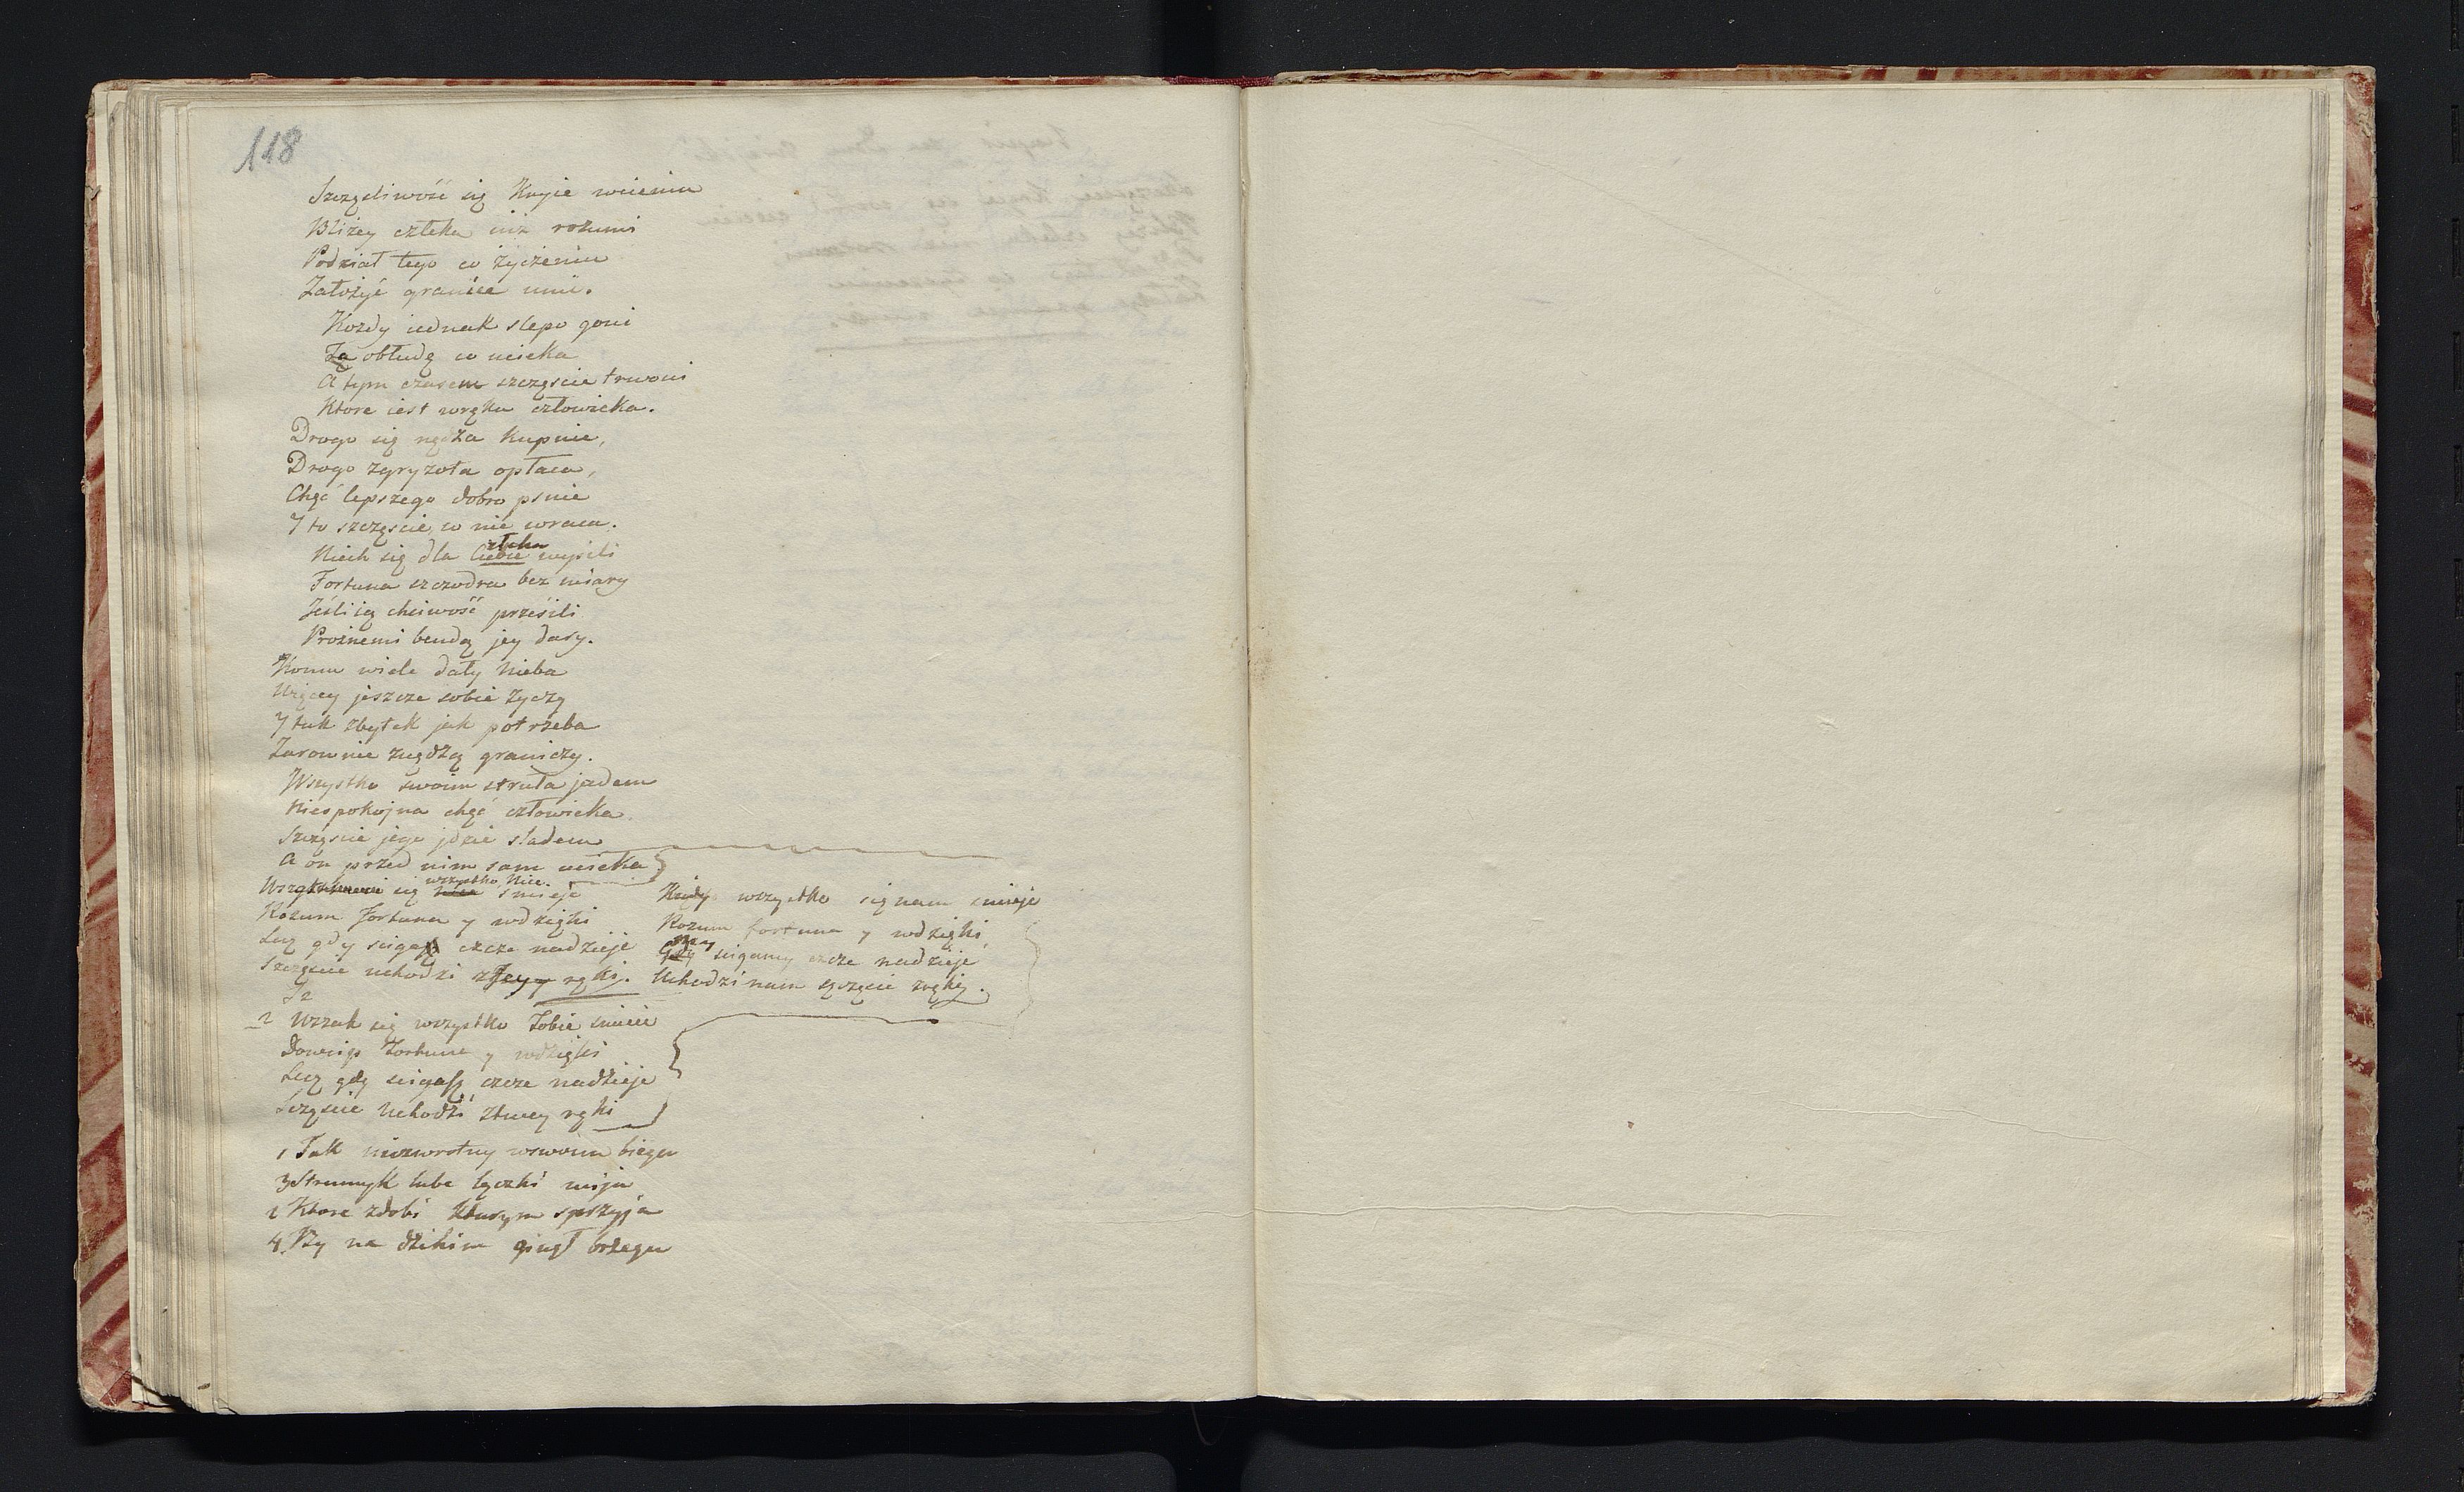 118
Szczęsliwość się Kryie wcieniu
Bliżey człeka niż rozumi
Podział tego co życzeniu
Założyć granice umie.
Kozdy iednak slepo goni
Za obłudą co ucieka
A tym czasem szczęscie trwoni
Ktore iest wręku człowieka.
Drogo się nędza kupuie,
Drogo zgryzota opłaca,
Chęć lepszego dobro psuie
Y to szczęscie co nie wraca.
człeka
Niech się dla Ciebie wysili
Fortuna szczodra bez miary
Jeśli ią chciwość przesili
Prożnemi bendą jey dary.
Komu wiele dały Nieba
Więcey jeszcze sobie życzy
Y tak zbytek jak potrzeba
Zarownie zuędzą graniczy.
Wszystko swoim struła jadem
Niespokojna chęć człowieka.
Szczęscie jego jdzie sladem
A on przed nim sam ucieka
wszystko
się smieje
Rozum Fortuna y wdzięki
Lecz gdy scigasz czcze nadzieje
Szczęscie uchodzi ręki.
Kiedy wszystko się nam smieje
Rozum fortuna y wdzięki
scigamy czcze nadzieje
Uchodzi nam szczęcie zręki.
2 Wszak się wszystko Tobie smieie
Dowcip Fortuna y wdzięki
Lecz gdy scigasz czcze nadzieje
Szczęscie Uchodzi ztwey ręki
1 Tak niezwrotny wswoim biegu
3 Strumyk lube łączki mija
2 Ktore zdobi Ktorym sprzyja
4. By na dzikim ginął brzegu